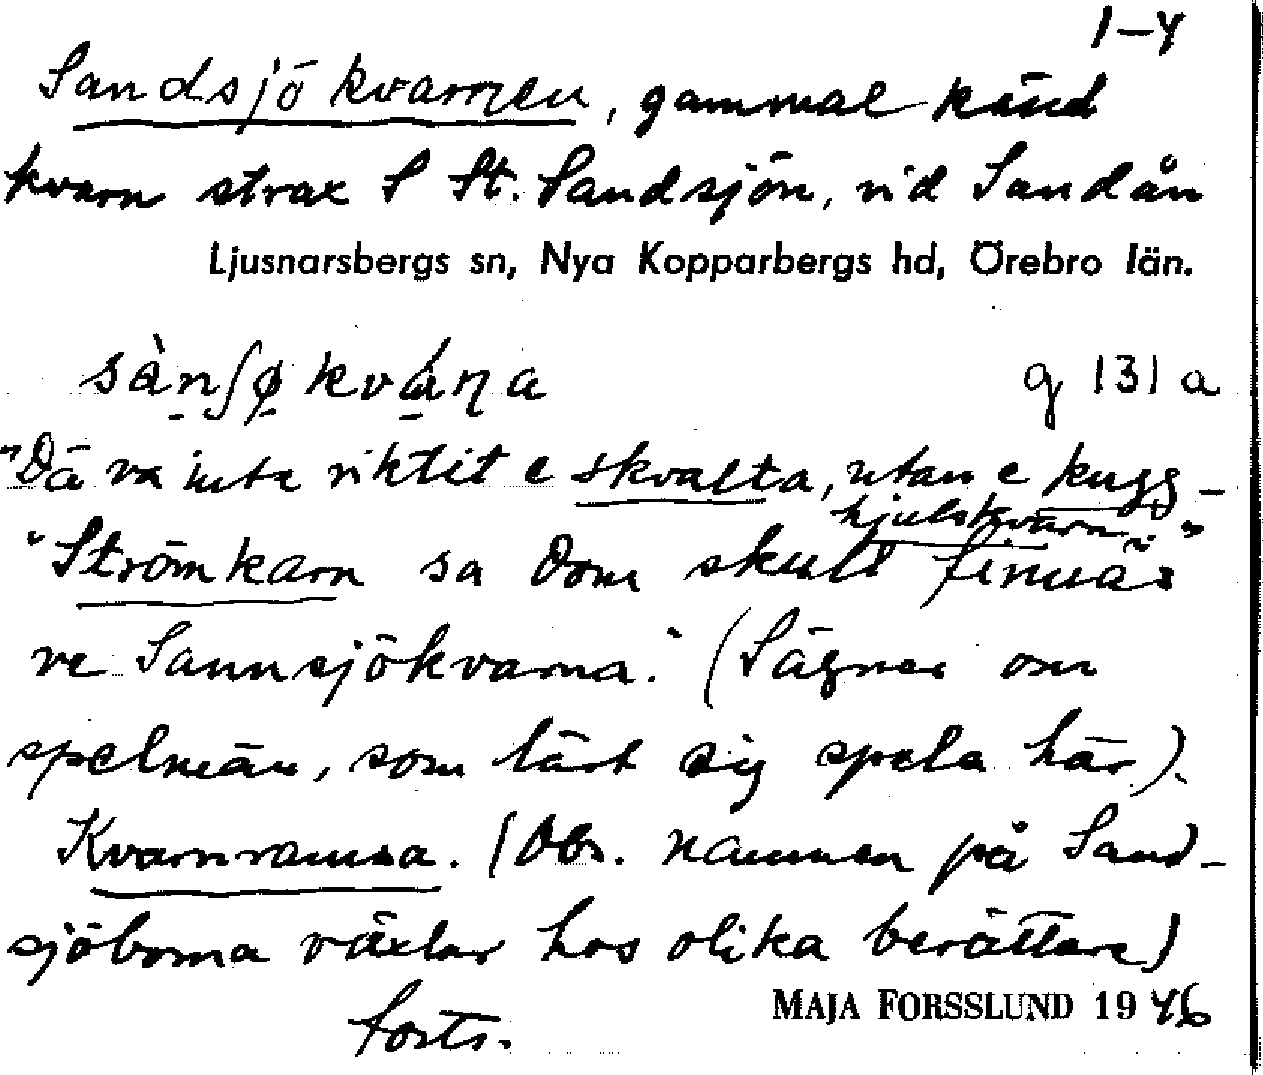 1-4
Sandsjökvarnen, gammal känd
kvarn strax S St. Sandsjön, vid Sandån
Ljusnarsbergs sn, Nya Kopparbergs hd, Örebro län.
sànʃø kváɳa g 131 a
"Dä va inte riktit e skvalta, utan e kugg-
hjulskvarn."
"Strömkarn sa dom skull finnäs
ve Sannsjökvarna." (Sägner om
spelmän, som lärt sig spela här).
Kvarnramsa. (Obs. namnen på Sand-
sjöborna växlar hos olika berättare)
forts.
MAJA FORSSLUND 1946